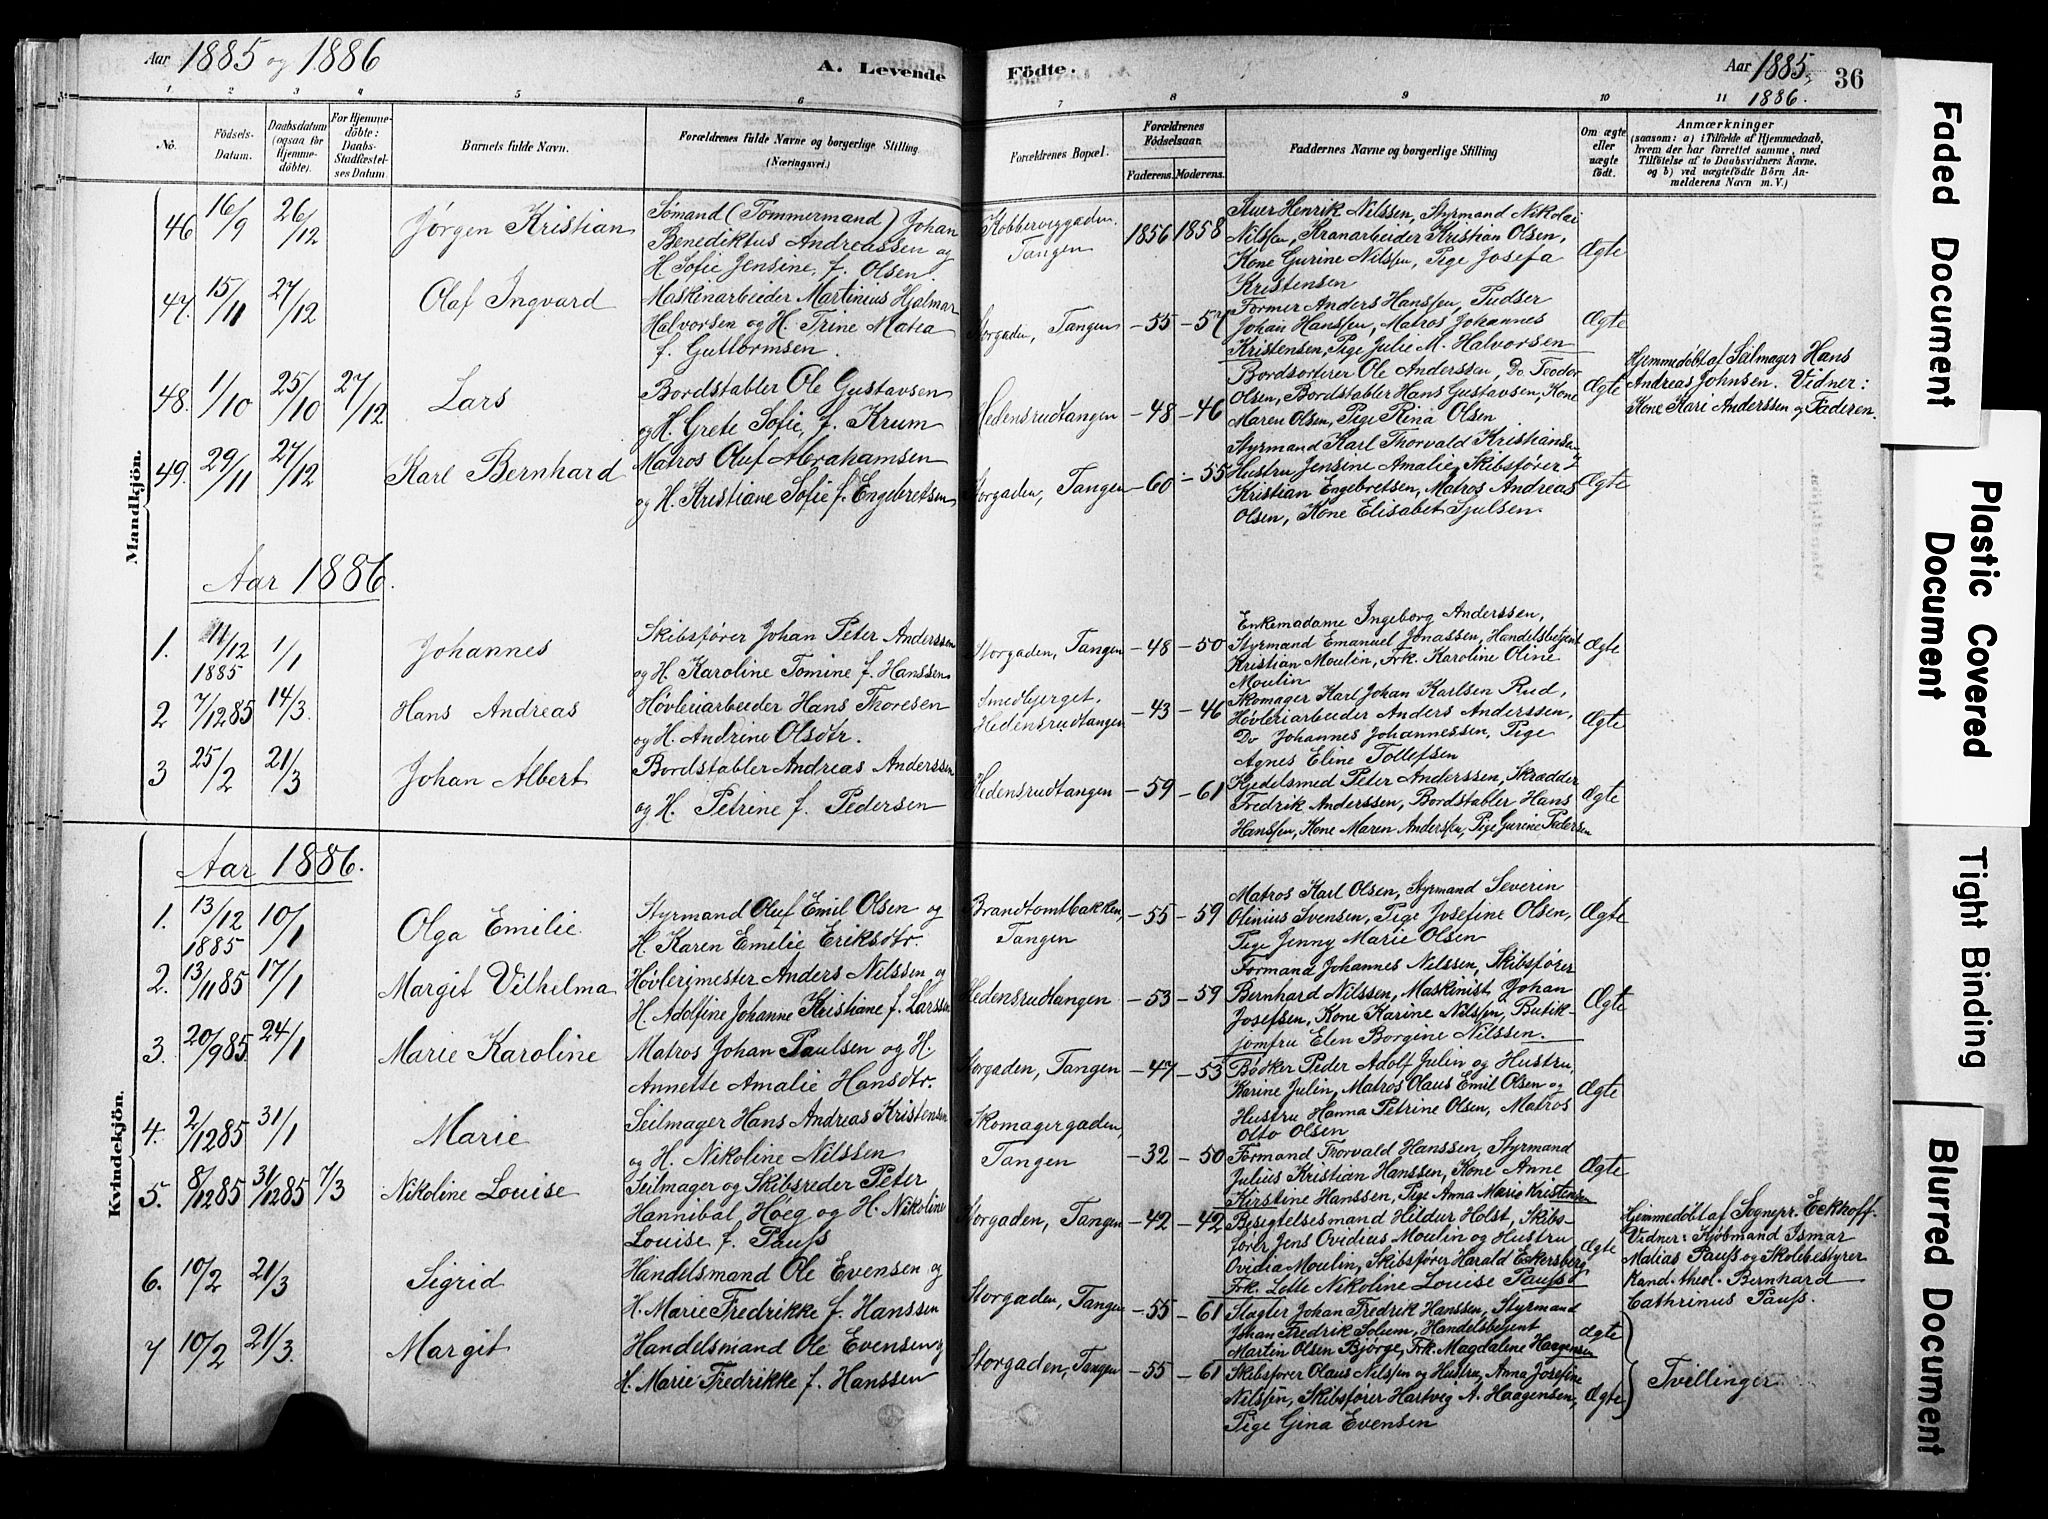 Aar 1885 og 1886
A. Levende Födte.
Aar 1885, 36
1886.
1 2 3 4 5 6 7 8 9 10 11
No.
Födsels-Datum.
Daabsdatum (ogsaa for Hjemmedöbte).
For Hjemmedöbte: Daabs-Stadfæstelses Datum.
Barnets fulde Navn.
Forældrenes fulde Navne og borgerlige Stilling.
(Næringsvei.)
Forældrenes Bopæl.
Forældrenes Födselsaar.
Faderens. Moderens.
Faddernes Navne og borgerlige Stilling
Om ægte eller uægte födt.
Anmærkninger
(saasom: a) i Tilfælde af Hjemmedaab,
hvem der har forrettet samme, med
Tilföielse af to Daabsvidners Navne,
og b) ved uægtefödte Börn Anmelderens Navn m. V.)
Mandkjön.
46 16/9 26/12 Jørgen Kristian
Sømand (Tømmermand) Johan
Benediktus Andreassen og
H. Sofie Jensine, f. Olsen.
Kobberviggaden.
Tangen
1856 1858
Stuer Henrik Nilssen, Styrmand Nikolai
Nilssen, Kranarbeider Kristian Olsen,
Kone Gurine Nilssen, Pige Josefa
Kristensen
Ægte
47. 15/11 27/12 Olaf Ingvard
Maskinarbeider Martinius Hjalmar
Halvorsen og H. Trine Matea
f. Guttormsen.
Storgaden, Tangen
-55 -57
Former Anders Hanssen, Pudser
Johan Hanssen, Matros Johannes
Kristensen, Pige Julie M. Halvorsen
Ægte
48. 1/10 25/10 27/12 Lars
Bordstabler Ole Gustavsen
og H. Grete Sofie, f. Krum
Hedensrudtangen
-48 -46
Bordsorterer Ole Anderssen, Do. Teodor
Olsen, Bordstabler Hans Gustavsen, Kone
Maren Olsen, Pige Rina Olsen
Ægte
Hjemmedøbt af Seilmager Hans
Andreas Johnsen. Vidner:
Kone Kari Anderssen og Faderen.
49. 29/11 27/12 Karl Bernhard
Matros Oluf Abrahamsen
og H. Kristiane Sofie f. Engebretsen
Storgaden, Tangen
-60 -55
Styrmand Karl Thorvald Kristiansen,
Hustru Jensine Amalie, Skibsfører
Kristian Engebretsen, Matros Andreas
Olsen, Kone Elisabet Sjulsen.
Ægte
Aar 1886.
1. 11/12 1885 1/1 Johannes
Skibsfører Johan Peter Anderssen
og H. Karoline Tomine f. Hanssen
Storgaden, Tangen
-48 -50
Enkemadame Ingeborg Anderssen,
Styrmand Emanuel Jonassen, Handelsbetjent
Kristian Moulin, Frk. Karoline Oline
Moulin
Ægte
2 7/12 85 14/3. Hans Andreas
Høvleriarbeider Hans Thoresen
og H. Andrine Olsdtr.
Smedbjerget,
Hedensrudtangen
-43 -46
Skomager Karl Johan Karlsen Rud,
Høvleriarbeider Anders Anderssen,
Do Johannes Johannessen, Pige
Agnes Eline Tollefsen
Ægte
3 25/2 21/3 Johan Albert
Bordstabler Andreas Anderssen
og H. Petrine f. Pedersen
Hedensrudtangen
-59 -61
Kjedelsmed Peter Anderssen, Skrædder
Fredrik Anderssen, Bordstabler Hans
Hanssen, Kone Maren Anderssen, Pige Gurine Petersen
Ægte
Kvindekjön.
Aar 1886.
1. 13/12 1885 10/1 Olga Emilie
Styrmand Oluf Emil Olsen og
H. Karen Emilie Eriksdtr.
Brandtomtbakken,
Tangen
-55 -59
Matros Karl Olsen, Styrmand Severin
Olinius Svensen, Pige Josefine Olsen,
Pige Jenny Marie Olsen
Ægte
2. 13/11 85 17/1 Margit Vilhelma
Høvlerimester Anders Nilssen og
H. Adolfine Johanne Kristiane f. Larssen
Hedensrudtangen
-53 -59
Formand Johannes Nilssen, Skibsfører
Bernhard Nilssen, Maskinist Johan
Josefsen, Kone Karine Nilssen, Butik-
jomfru Elen Borgine Nilssen.
Ægte
3. 20/9 85. 24/1 Marie Karoline
Matros Johan Paulsen og H.
Annette Amalie Hansdtr.
Storgaden, Tangen
-47 -53
Bødker Peder Adolf Julin og Hustru,
Karine Julin, Matros Olaus Emil Olsen og
Hustru Hanna Petrine Olsen, Matros
Otto Olsen
Ægte
4. 2/12 85 31/1 Marie
Seilmager Hans Andreas Kristensen
og H. Nikoline Nilssen
Skomagergaden,
Tangen
-32 -50
Formand Thorvald Hanssen, Styrmand
Julius Kristian Hanssen, Kone Anne
Kirstine Hanssen, Pige Anna Marie Kristensen
Ægte
5. 8/12 85 31/12 85 7/3 Nikoline Louise
Seilmager og Skibsreder Peter
Hannibal Høeg og H. Nikoline
Louise f. Pauss
Storgaden, Tangen
-42 -42
Besigtelsesmand Hildur Holst, Skibs-
fører Jens Ovidius Moulin og Hustru
Ovidia Moulin, Skibsfører Harald Eckersberg
Frk. Lotte Nikoline Louise Pauss
Ægte
Hjemmedøbt af Sognepr. Eckhoff.
Vidner: Kjøbmand Ismar
Matias Pauss og Skolebestyrer
Kand. theol. Bernhard
Cathrinus Pauss.
6. 10/2 21/3 Sigrid
Handelsmand Ole Evensen og
H. Marie Fredrikke f. Hanssen
Storgaden, Tangen
-55 -61
Slagter Johan Fredrik Hanssen, Styrmand
Johan Fredrik Solum, Handelsbetjent
Martin Olsen Bjørge, Frk. Magdalene Haagensen
Ægte
7 10/2 21/3. Margit
Handelsmand Ole Evensen og
H. Marie Fredrikke f. Hanssen
Storgaden, Tangen
-55 -61
Skibsfører Olaus Nilssen og Hustru, Anna Josefine
Nilssen, Skibsfører Hartvig A. Haagensen,
Pige Gina Evensen
Ægte
Tvillinger
Faded Document
Plastic Covered Document
Tight Binding
Blurred Document